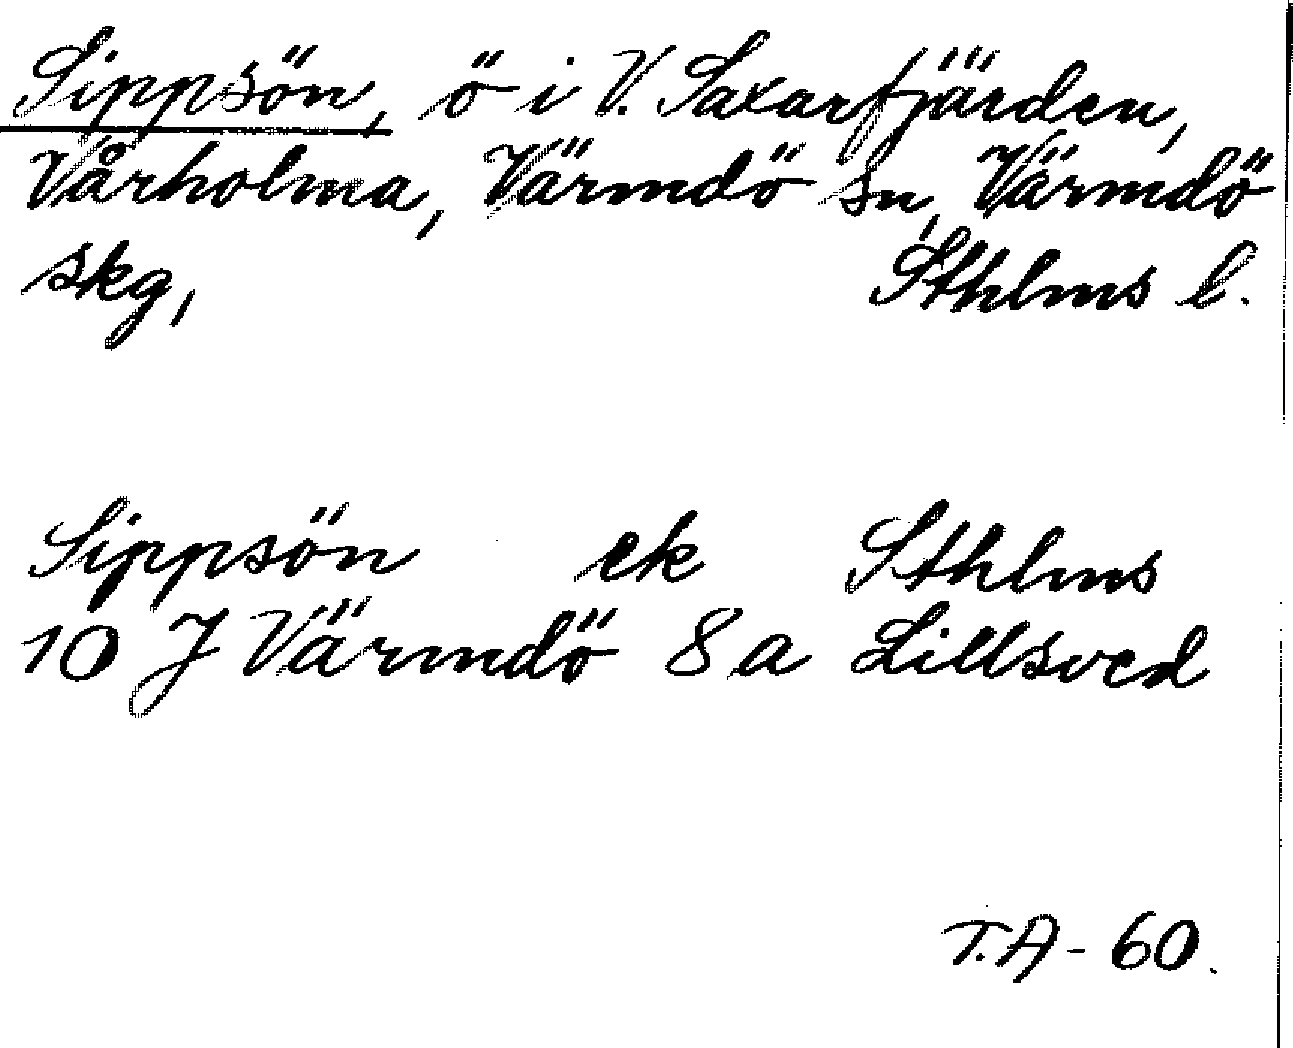 Sippsön, ö i V. Saxarfjärden,
Vårholma, Värmdö sn, Värmdö
skg, Sthlms l.
Sippsön ek Sthlms
10 J Värmdö 8a Lillsved
T.A - 60.